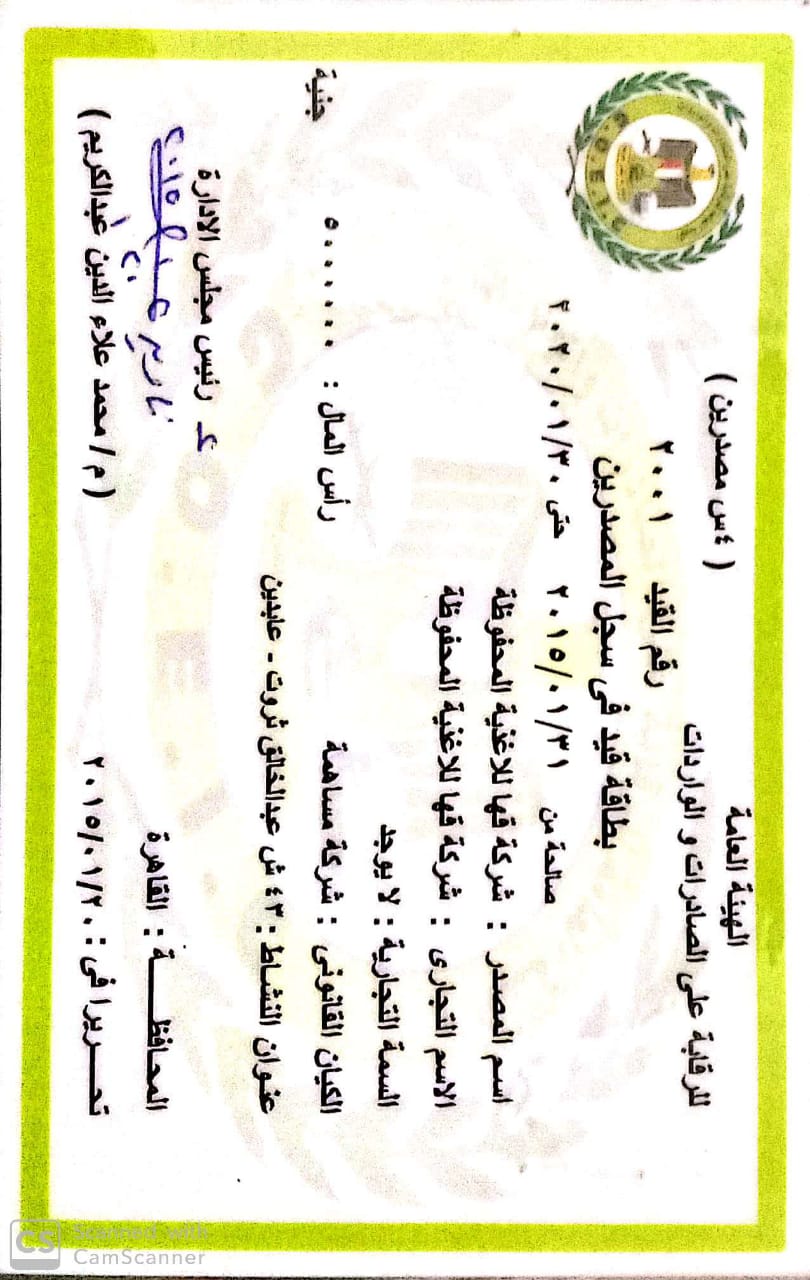 الهيئة العامة
للرقابة على الصادرات و الواردات
( ٤س مصدرين )
رقم القيد ٢٠٠١
بطاقة قيد فى سجل المصدرين
صالحة من ٢٠١٥/٠١/٣١ حتى ٢٠٢٠/٠١/٣٠
اسم المصدر : شركة قها للاغذية المحفوظة
الاسم التجارى : شركة قها للاغذية المحفوظة
السمة التجارية : لا يوجد
الكيان القانونى : شركة مساهمة رأس المال : ٥٠٠٠٠٠٠ جنية
عنوان النشاط : ٤٣ ش عبدالخالق ثروت - عابدين
المحافظـــة : القاهرة
تحـــريرا فى : ٢٠١٥/٠١/٢٠
رئيس مجلس الادارة
( م / محمد علاء الدين عبدالكريم )
G O E I C
CS Scanned with
CamScanner